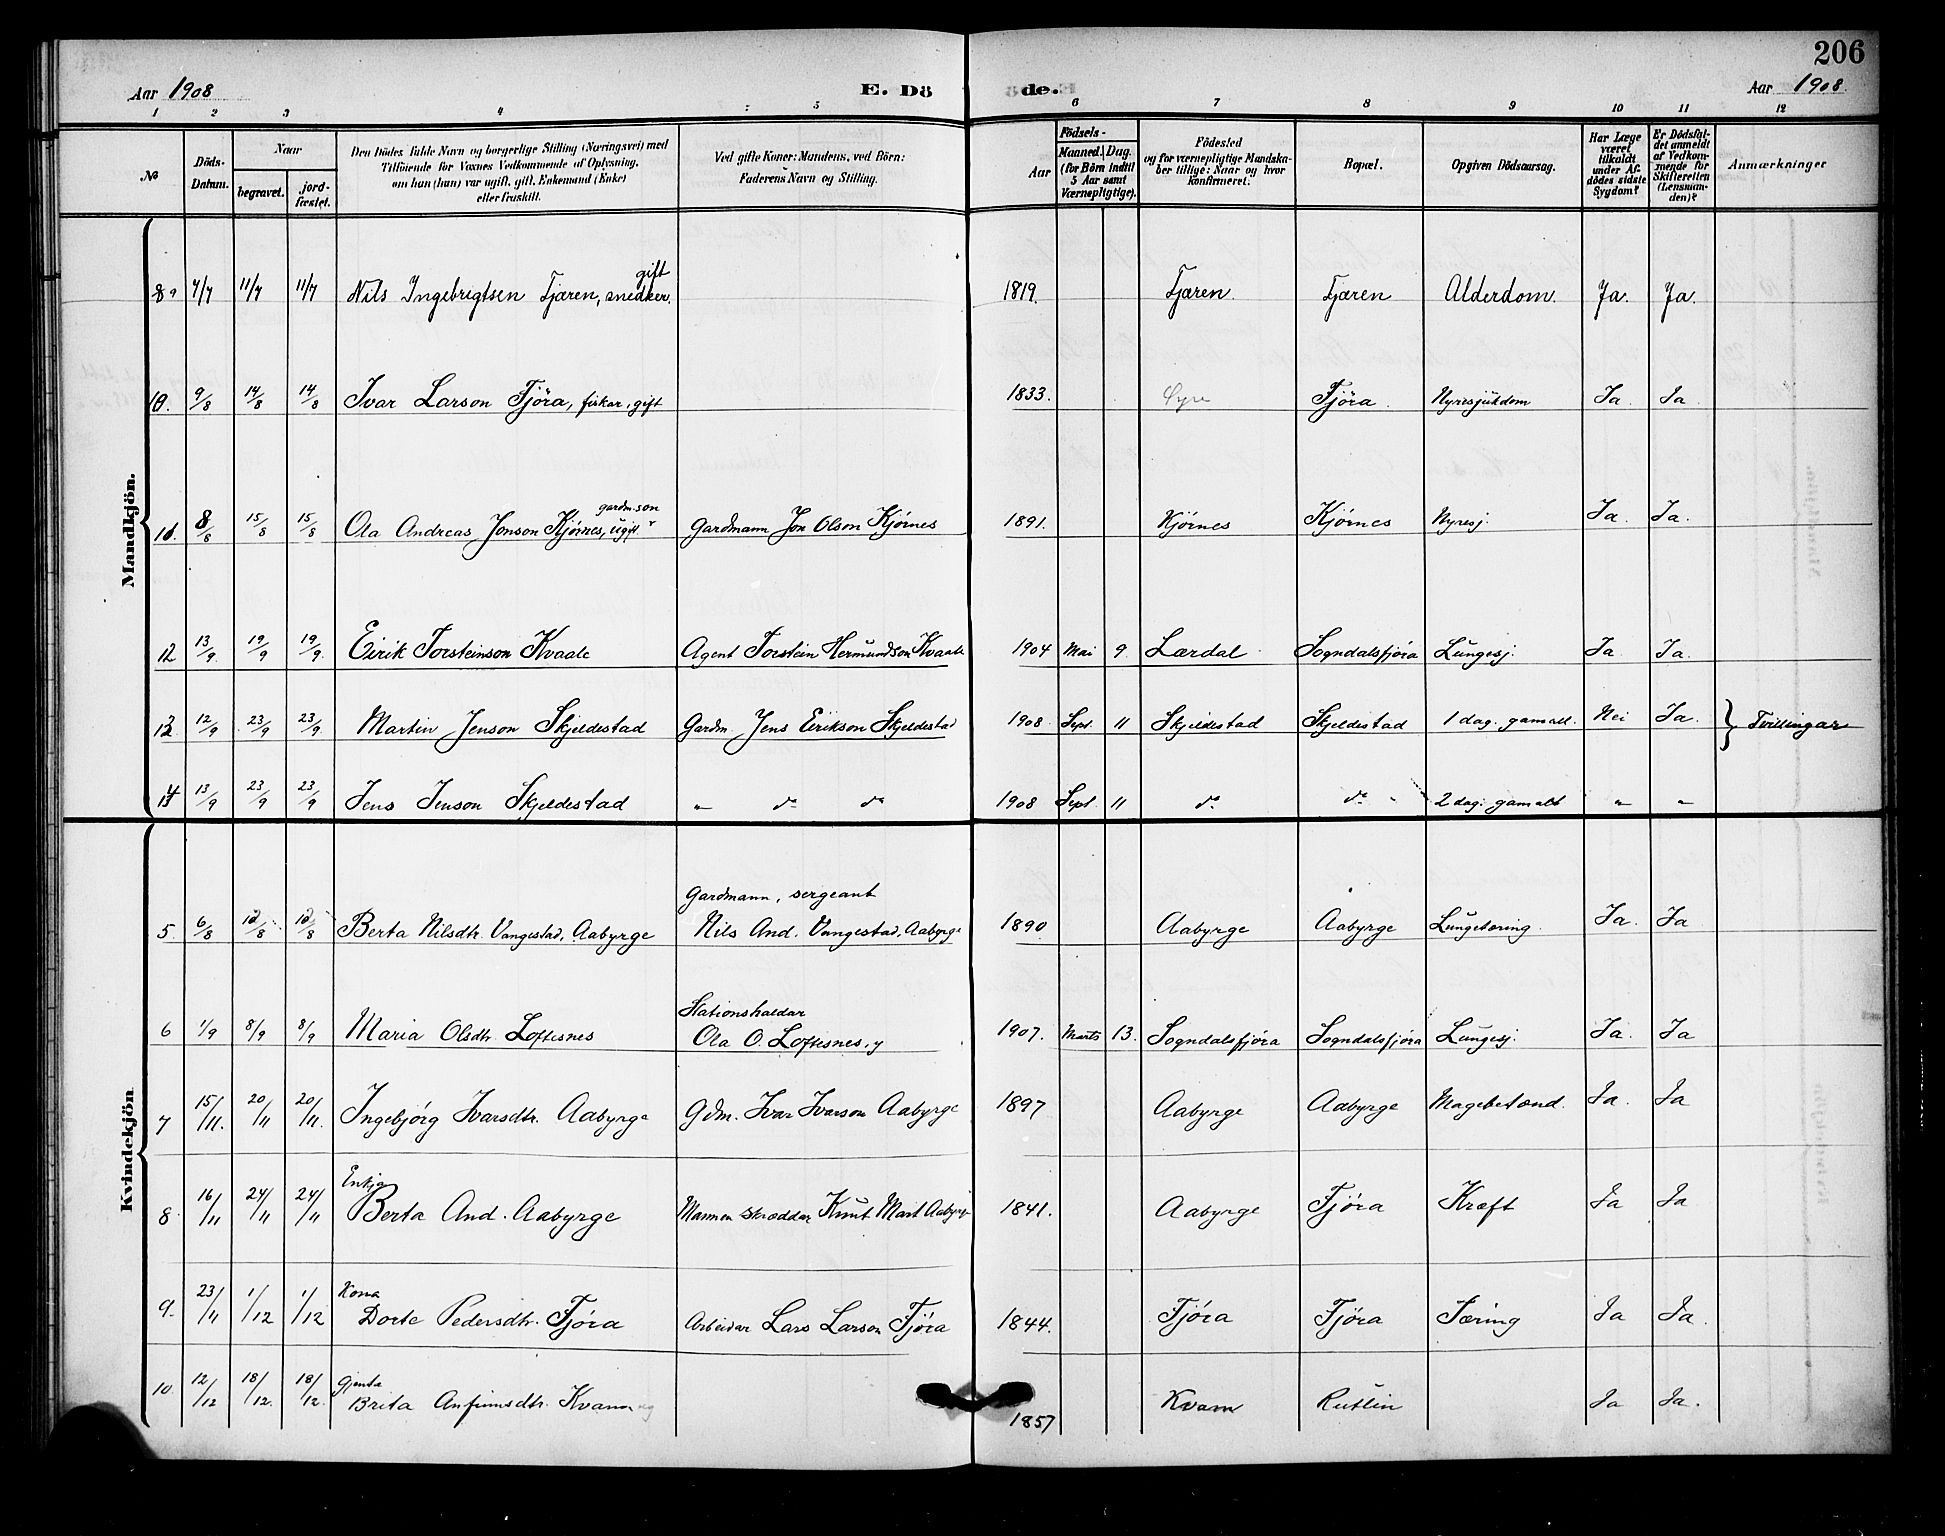 206
Aar 1908 E. Dö de. Aar 1908.
1 2 3 4 5 6 7 8 9 10 11 12
No
Döds-Datum.
Naar
begravet.
jord-fæstet.
Den Dödes fulde Navn og borgerlige Stilling (Næringsvei) med
Tilföiende for Voxnes Vedkommende af Oplysning,
om hun (han) var ugift, gift, Enkemand (Enke)
eller fraskilt.
Ved gifte Koner: Mandens, ved Börn:
Faderens Navn og Stilling.
Aar
Födsels-
Maaned. Dag.
(for Börn indtil
5 Aar samt
Værnepligtige).
Födested
og for værnepligtige Mandska-
ber tillige: Naar og hvor
konfirmeret.
Bopæl.
Opgiven Dödsaarsag.
Har Læge
været
tilkaldt
under Af-
dödes sidste
Sygdom?
Er Dödsfal-
det anmeldt
af Vedkom-
mende for
Skifteretten
(Lensman-
den)?
Anmærkninger
Mandkjön.
gift
4/7 11/7 11/7 Nils Ingebrigtsen Fjæren, snedker. 1819. Fjæren. Fjæren Alderdom. Ja. Ja.
10. 9/8 14/8 14/8 Ivar Larson Fjöra, fiskar, gift 1833. Fjöra. Nyresjukdom Ja. Ja
gardmson
8/8 15/8 15/8 Ola Andreas Jonson Kjörnes, ugift Gardmann Jon Olson Kjörnes 1891. Kjörnes Kjörnes Nyresj. Ja. Ja.
12 13/9 19/9 19/9. Eirik Torsteinson Kvaale Agent Torstein Hermundson Kvaale 1904 Mai 9. Lærdal Sogndalsfjöra Lungesj. Ja. Ja.
13 12/9 23/9 23/9. Martin Jenson Skjeldestad Gardm. Jens Eirikson Skjeldestad 1908 Sept. 11 Skjeldestad Skjeldestad 1 dag. gamall. Nei Ja. } Tvillingar
14 13/9 23/9 23/9 Jens Jenson Skjeldestad " do do 1908 Sept. 11 do do 2 dag. gamalt " "
Kvindekjön
Gardmann, sergeant
5. 6/8 12/8 12/8 Berta Nilsdtr. Vangestad, Aabyrge Nils And. Vangestad, Aabyrge 1890 Aabyrge Aabyrge Lungetæring. Ja. Ja
Stationshaldar
6 1/9 8/9 8/9 Maria Olsdtr. Loftesnes Ola O. Loftesnes, y 1907. Marts 13. Sogndalsfjöra Sogndalsfjöra Lungesj. Ja. Ja
7 15/11. 20/11 20/11. Ingebjörg Ivarsdtr. Aabyrge Gdm. Ivar Ivarson Aabyrge 1897 Aabyrge Aabyrge Magebetænd. Ja. Ja
Enkja
8 16/11 24/11 24/11 Berta And. Aabyrge Mannen skræddar Knut Mart. Aabyrge 1841. Aabyrge Fjöra Kræft Ja Ja
Kona
9. 23/11 1/12 1/12 Dorte Pedersdtr. Fjöra Arbeidar Lars Larson Fjöra 1844. Fjöra Fjöra Tæring Ja Ja.
Gjenta
10. 12/12 18/12. 18/12. Brita Anfinnsdtr. Kvam 1857 Kvam Rutlin Ja Ja.